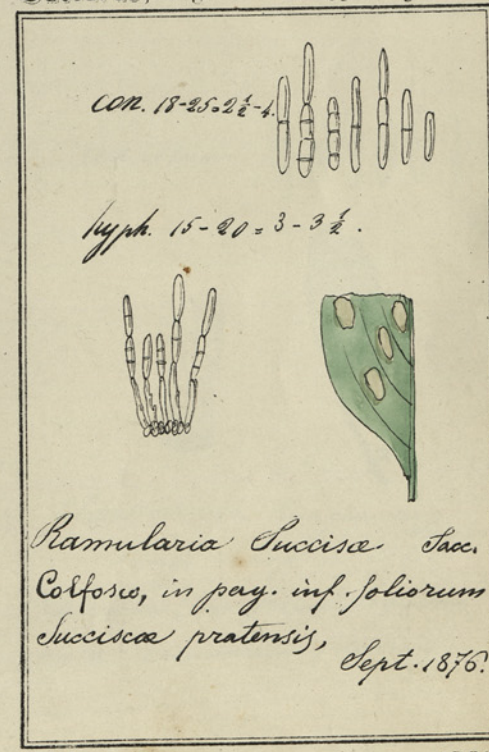 con. 18-25=2½-4.
hyph. 15-20=3-3½.
Ramularia Succisæ Sacc.
Colfosco, in pag. inf. foliorum
Succiscæ pratensis,
Sept. 1876.